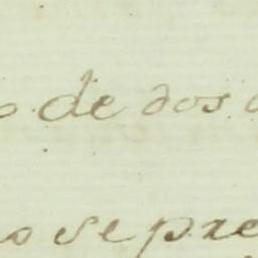 de dos
se pre